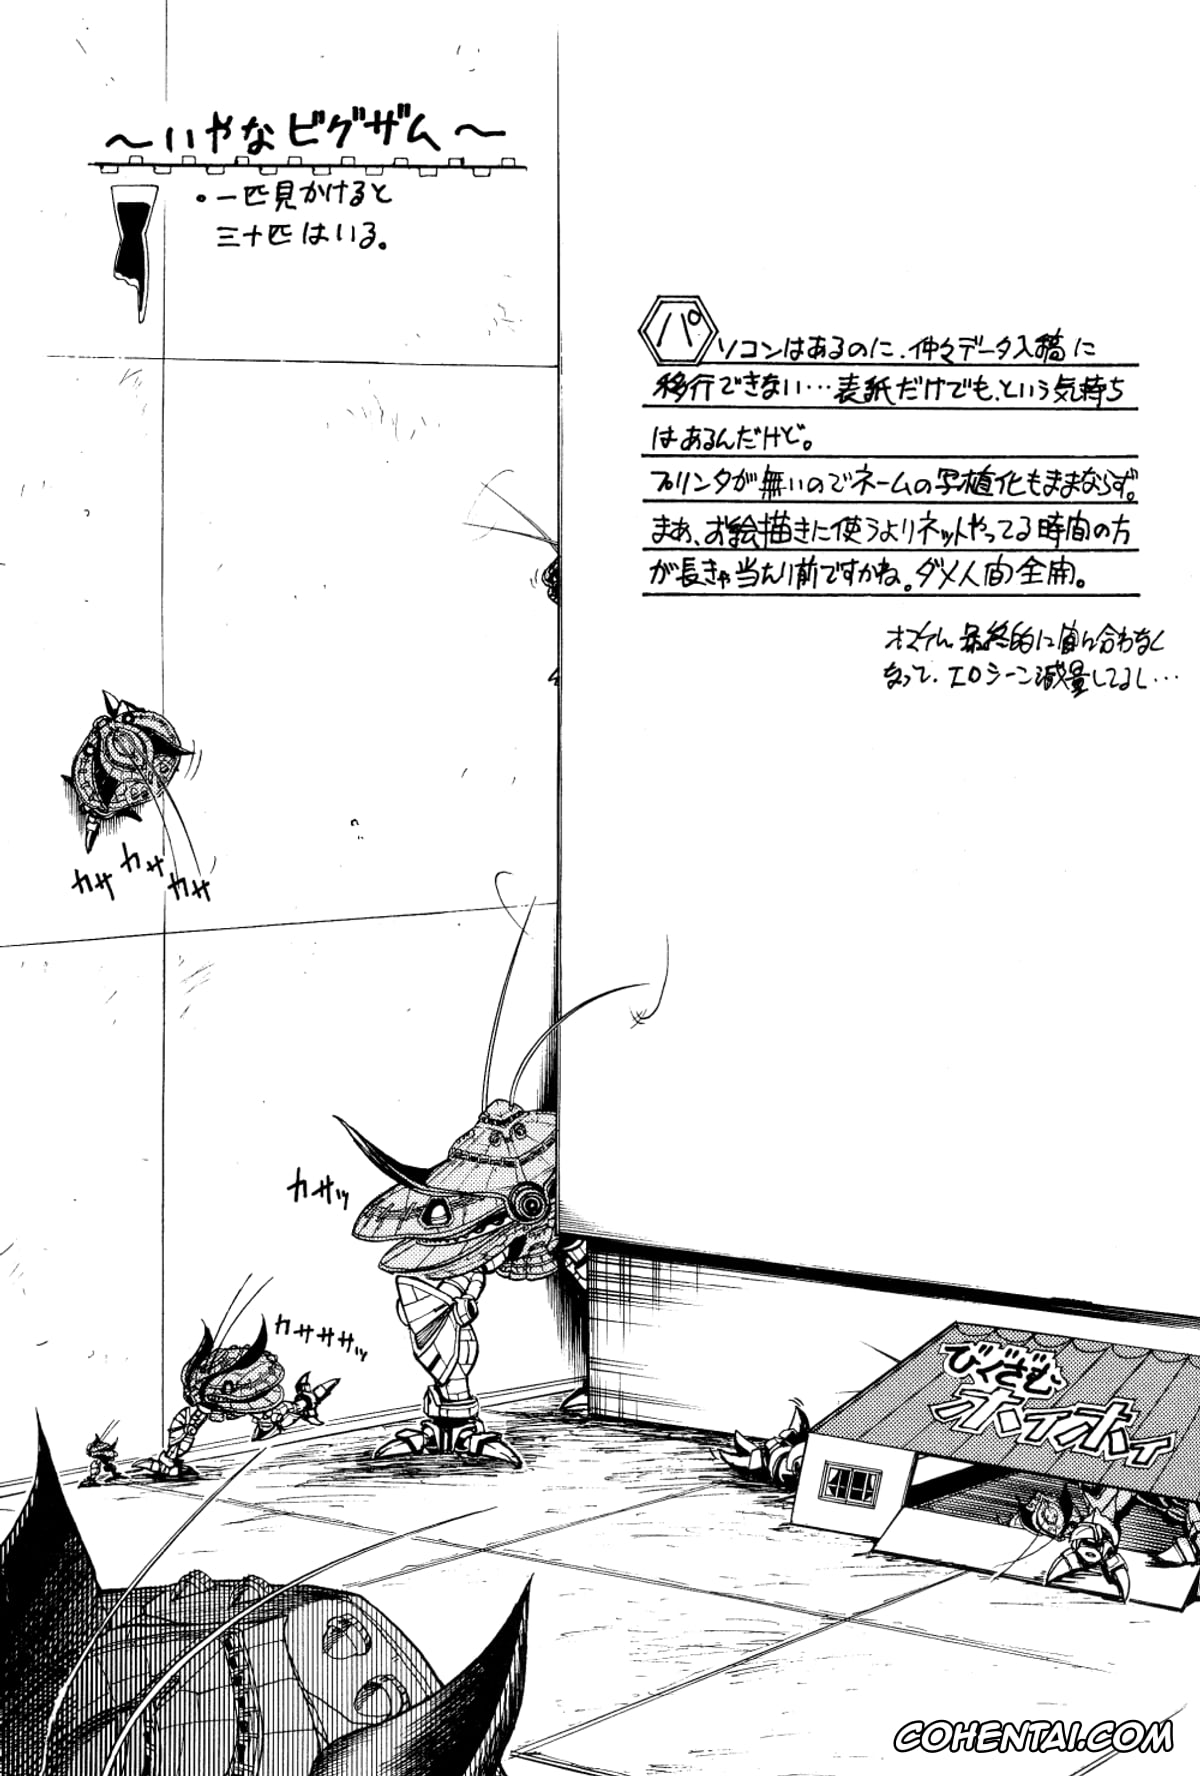 ～いやなビグザム～
・一匹見かけると
三十匹はいる。
パソコンはあるのに、仲々データ入稿に
移行できない…表紙だけでも、という気持ち
はあるんだけど。
プリンタが無いのでネームの写植化もままならず。
まあ、お絵描きに使うよりネットやってる時間の方
が長きゃ当たり前ですかね。ダメ人間全開。
オマケに最終的に間に合わなく
なって、エロシーン減量してるし…
カサ
カサ
カサ
カサッ
カササササッ
びぐざむ
ホイホイ
COHENTAI.COM